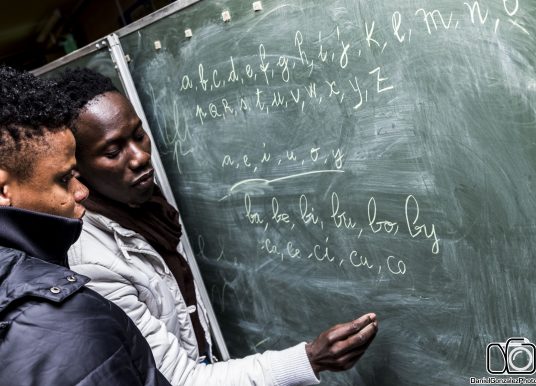 a, b, c, d, e, f, g, h, i, j, k, l, m, n, o
p, q, r, s, t, u, v, w, x, y, z
a, e, i, u, o, y
ba, be, bi, bu, bo, by
ca, ce, ci, cu, co
DanielGonzalezPhoto